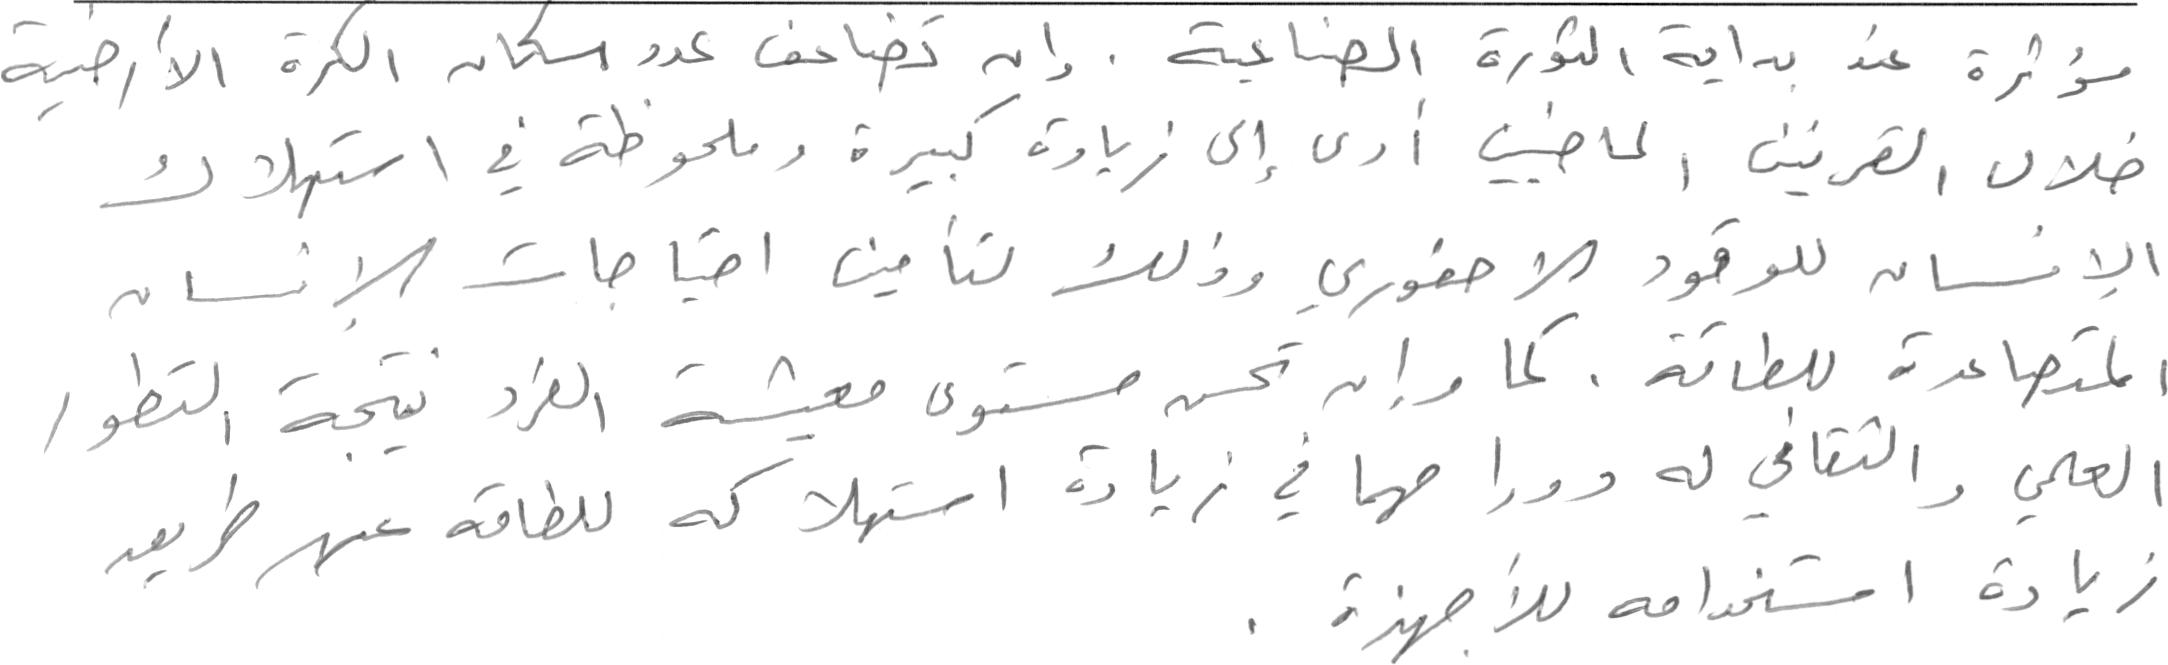 مؤثرة عند بداية الثورة الصناعية . وإن تضاعف عدد سكان الكرة الأرضية
خلال القرنين الماضيين أدى إلى زيادة كبيرة وملحوظة في استهلاك
الإنسان للوقود الاحفوري وذلك لتأمين احتياجات الإنسان
المتصاعدة للطاقة . كما وإن تحسن مستوى معيشة الفرد نتيجة التطور
العلمي والثقافي له دورا مهما في زيادة استهلاكه للطاقة عن طريق
زيادة استخدامه للأجهزة .